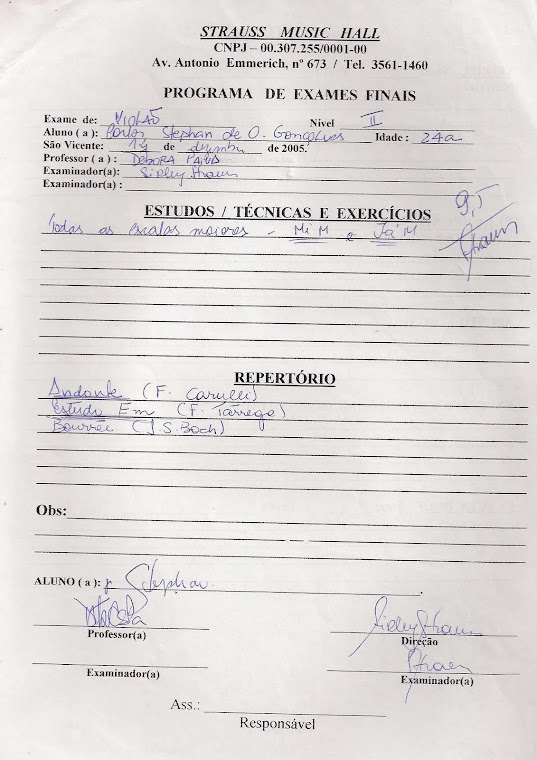 STRAUSS MUSIC HALL
CNPJ – 00.307.255/0001-00
Av. Antonio Emmerich, nº 673 / Tel. 3561-1460
PROGRAMA DE EXAMES FINAIS
Exame de: VIOLÃO Nível II
Aluno ( a ): Carlos Stephan de O. Gonçalves Idade : 24a
São Vicente: 14 de dezembro de 2005.
Professor ( a ) : DÉBORA PAIVA
Examinador(a): Sidley Strauss
Examinador(a) :
9,5
Strauss
ESTUDOS / TÉCNICAS E EXERCÍCIOS
Todas as escalas maiores - Mi M e Fá M
REPERTÓRIO
Andante (F. Carulli)
Estudo Em (F. Tárrega)
Bourrée (J.S.Bach)
Obs:
ALUNO ( a ): Stephan
Professor(a)
Sidley Strauss
Direção
Strauss
Examinador(a)
Examinador(a)
Ass.:
Responsável